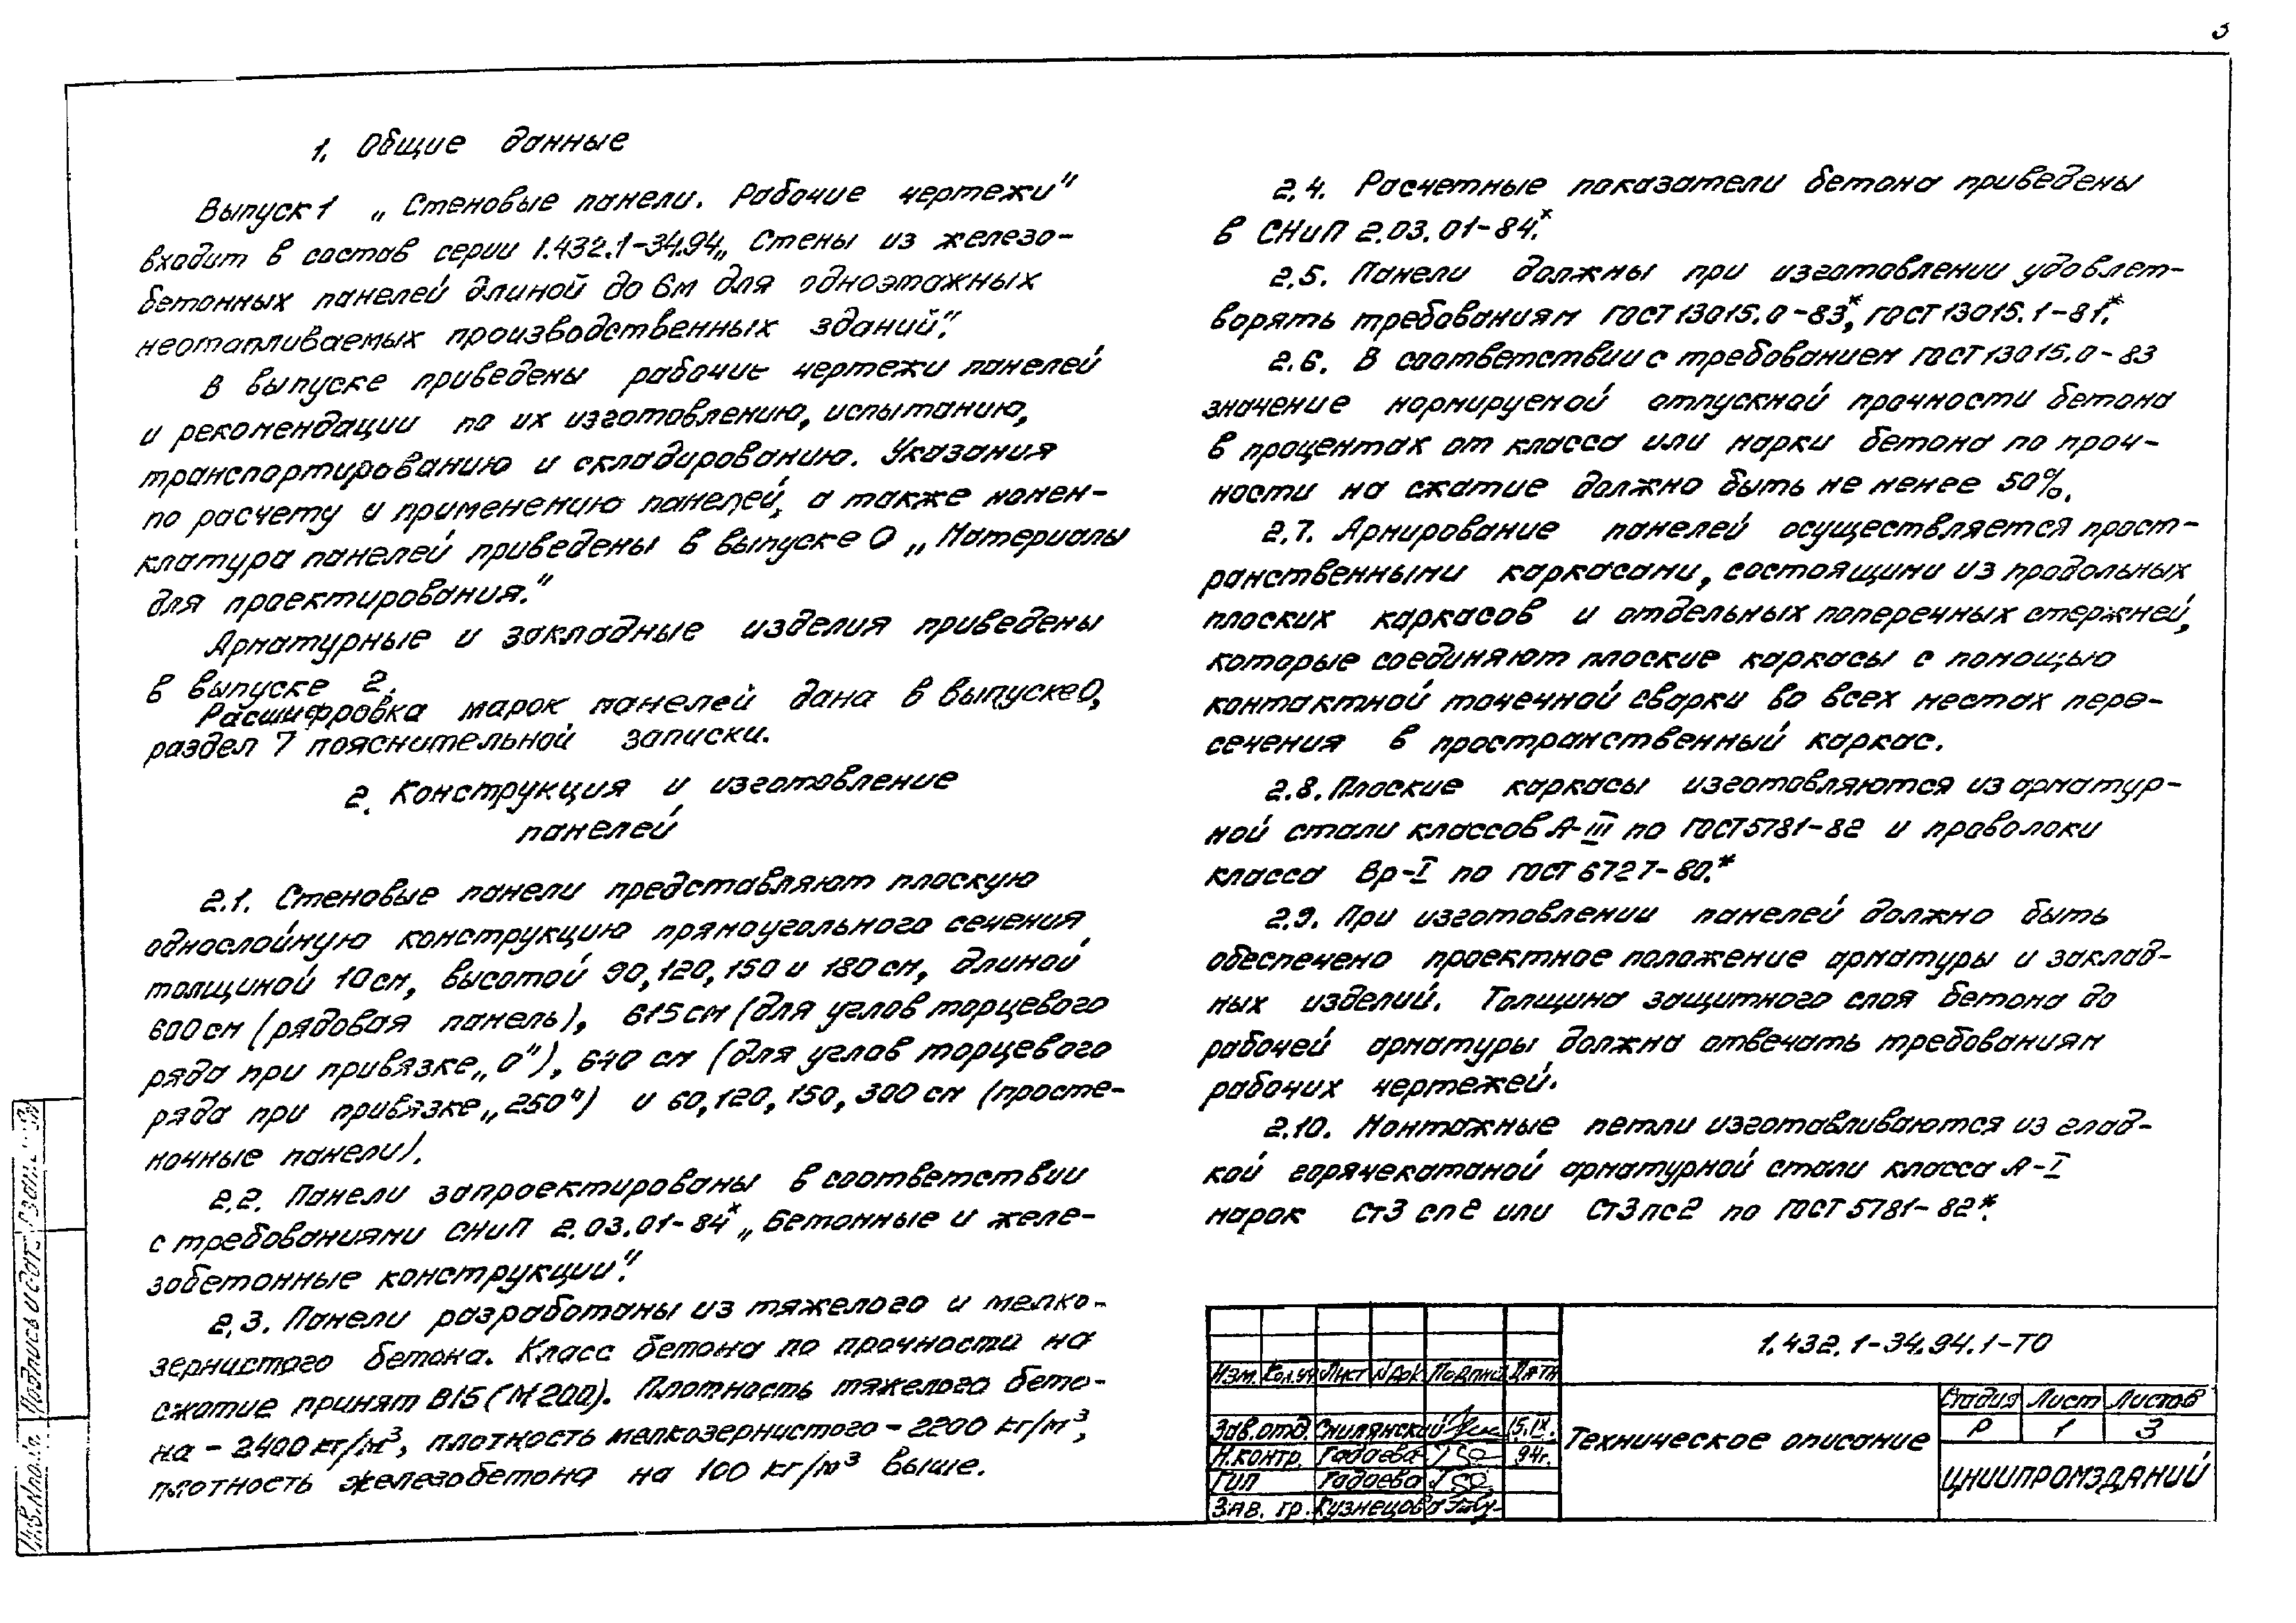 3
1. Общие данные
Выпуск 1 „Стеновые панели. Рабочие чертежи"
входит в состав серии 1.432.1-34.94 „Стены из железо-
бетонных панелей длиной до 6м для одноэтажных
неотапливаемых производственных зданий".
В выпуске приведены рабочие чертежи панелей
и рекомендации по их изготовлению, испытанию,
транспортированию и складированию. Указания
по расчету и применению панелей, а также номен-
клатура панелей приведены в выпуске 0 „Материалы
для проектирования."
Арматурные и закладные изделия приведены
в выпуске 2.
Расшифровка марок панелей дана в выпуске 0,
раздел 7 пояснительной записки.
2. Конструкция и изготовление
панелей
2.1. Стеновые панели представляют плоскую
однослойную конструкцию прямоугольного сечения
толщиной 10см, высотой 90, 120, 150 и 180 см, длиной
600 см (рядовая панель), 615 см (для углов торцевого
ряда при привязке „0"), 640 см (для углов торцевого
ряда при привязке „250") и 60, 120, 150, 300 см (просте-
ночные панели).
2.2. Панели запроектированы в соответствии
с требованиями СНиП 2.03.01-84* „Бетонные и желе-
зобетонные конструкции".
2.3. Панели разработаны из тяжелого и мелко-
зернистого бетона. Класс бетона по прочности на
сжатие принят В15 (М200). Плотность тяжелого бето-
на - 2400 кг/м³, плотность мелкозернистого - 2200 кг/м³,
плотность железобетона на 100 кг/м³ выше.
2.4. Расчетные показатели бетона приведены
в СНиП 2.03.01-84*.
2.5. Панели должны при изготовлении удовлет-
ворять требованиям ГОСТ 13015.0-83*, ГОСТ 13015.1-81*.
2.6. В соответствии с требованием ГОСТ 13015.0-83
значение нормируемой отпускной прочности бетона
в процентах от класса или марки бетона по проч-
ности на сжатие должно быть не менее 50%.
2.7. Армирование панелей осуществляется прост-
ранственными каркасами, состоящими из продольных
плоских каркасов и отдельных поперечных стержней,
которые соединяют плоские каркасы с помощью
контактной точечной сварки во всех местах пере-
сечения в пространственный каркас.
2.8. Плоские каркасы изготовляются из арматур-
ной стали классов А-III по ГОСТ 5781-82 и проволоки
класса Вр-I по ГОСТ 6727-80.*
2.9. При изготовлении панелей должно быть
обеспечено проектное положение арматуры и заклад-
ных изделий. Толщина защитного слоя бетона до
рабочей арматуры должна отвечать требованиям
рабочих чертежей.
2.10. Монтажные петли изготавливаются из глад-
кой горячекатаной арматурной стали класса А-I
марок Ст3 сп2 или Ст3пс2 по ГОСТ 5781-82*.
1.432.1-34.94.1-ТО
Изм. Кол.уч Лист №Док Подпись Дата
Стадия Лист Листов
Р 1 3
Зав.отд. Смилянский 15.IX.
Н.контр. Гадаева 94г.
ГИП Гадаева
Зав. гр. Кузнецова
Техническое описание
ЦНИИПРОМЗДАНИЙ
Подпись и дата